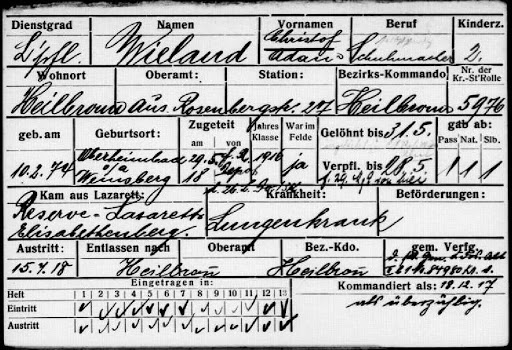 Dienstgrad Namen Vornamen Beruf Kinderz.
Wieland Christof Adam Schuhmacher 2.
Wohnort Oberamt: Station: Bezirks-Kommando Nr. der Kr.-St'Rolle
Heilbronn aus. Rosenbergstr. 27 Heilbronn 5976
geb. am Geburtsort: Zugeteit am von Jahres Klasse War im Felde Gelöhnt bis 31.5. gab ab:
Pass Nat. Slb.
10.2.74 Oberheimbach o/a Weinsberg 29.5. 18 1916 ja Verpfl. bis 28.5 1 1 1
Kam aus Lazarett: Krankheit: Beförderungen:
Reserve-Lazarett Elisabethenberg. Lungenkrank
Austritt: Entlassen nach Oberamt Bez.-Kdo. gem. Verfg.
15.7.18 Heilbron Heilbron
Eingetragen in: Kommandiert als: 18.12.17
Heft 1 2 3 4 5 6 7 8 9 10 11 12 13 als überzählig.
Eintritt
Austritt